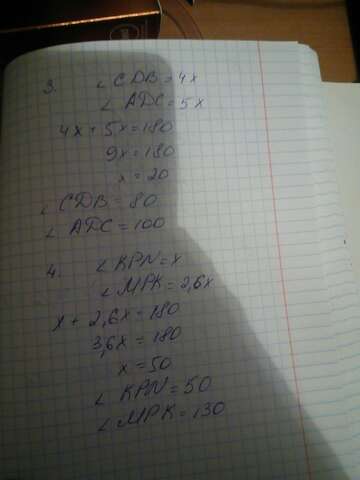 3. ∠ CDB = 4x
∠ ADC = 5x
4x + 5x = 180
9x = 180
x = 20
∠ CDB = 80
∠ ADC = 100
4. ∠ KPN = x
∠ MPK = 2,6x
x + 2,6x = 180
3,6x = 180
x = 50
∠ KPN = 50
∠ MPK = 130